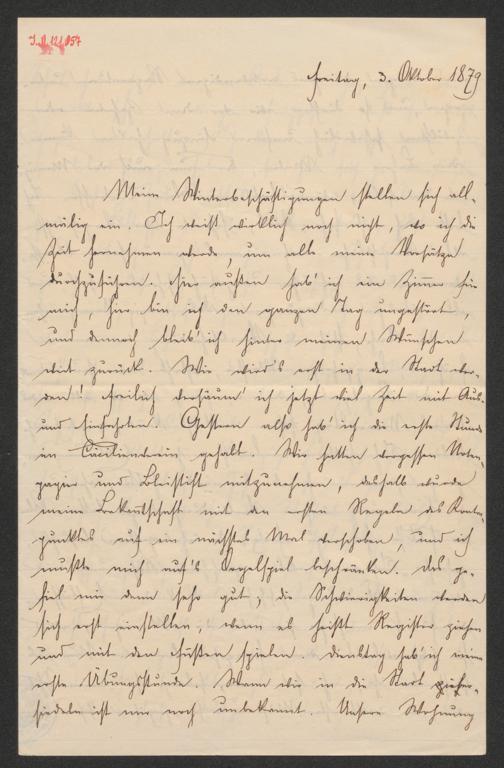 Freitag, 3. Oktober 1879
Meine Winterbeschäftigungen stellen sich all-
mälig ein. Ich weiß wirklich noch nicht, wo ich die
Zeit hernehmen werde, um alle meine Vorsätze
durchzuführen. Hier außen hab' ich ein Zimmer für
mich, hier bin ich den ganzen Tag ungestört,
und dennoch bleib' ich hinter meinen Wünschen
weit zurück. Wie wird's erst in der Stadt wer-
den! Freilich versäum' ich jetzt viel Zeit mit Aus-
und Einfahrten. Gestern also hab' ich die erste Stunde
im Cäcilienverein gehabt. Wir hatten vergessen Noten-
papier und Bleistift mitzunehmen, deshalb wurde
meine Bekanntschaft mit den ersten Regeln des Kontra-
punktes auf ein nächstes Mal verschoben, und ich
mußte mich auf's Orgelspiel beschränken. Das ge-
fiel mir denn sehr gut; die Schwierigkeiten werden
sich erst einstellen, wenn es heißt Register ziehen
und mit den Füßen spielen. Dienstag hab' ich meine
erste Übungsstunde. Wann wir in die Stadt
siedeln ist mir noch unbekannt. Unsere Wohnung